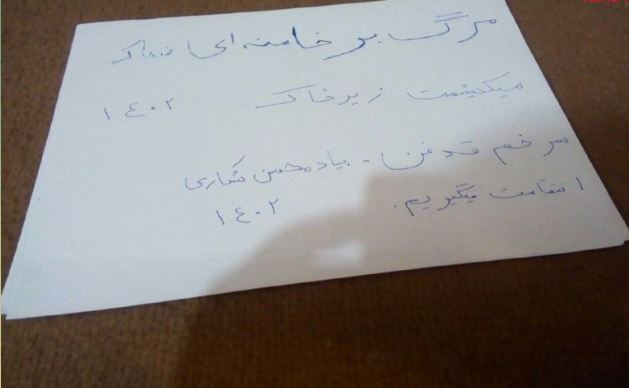 مرگ بر خامنه ای ضحاک
میکشمت زیر خاک ۱۴۰۲
سر خم قدغن. بیاد محسن شکاری
انتقامت میگیریم. ۱۴۰۲